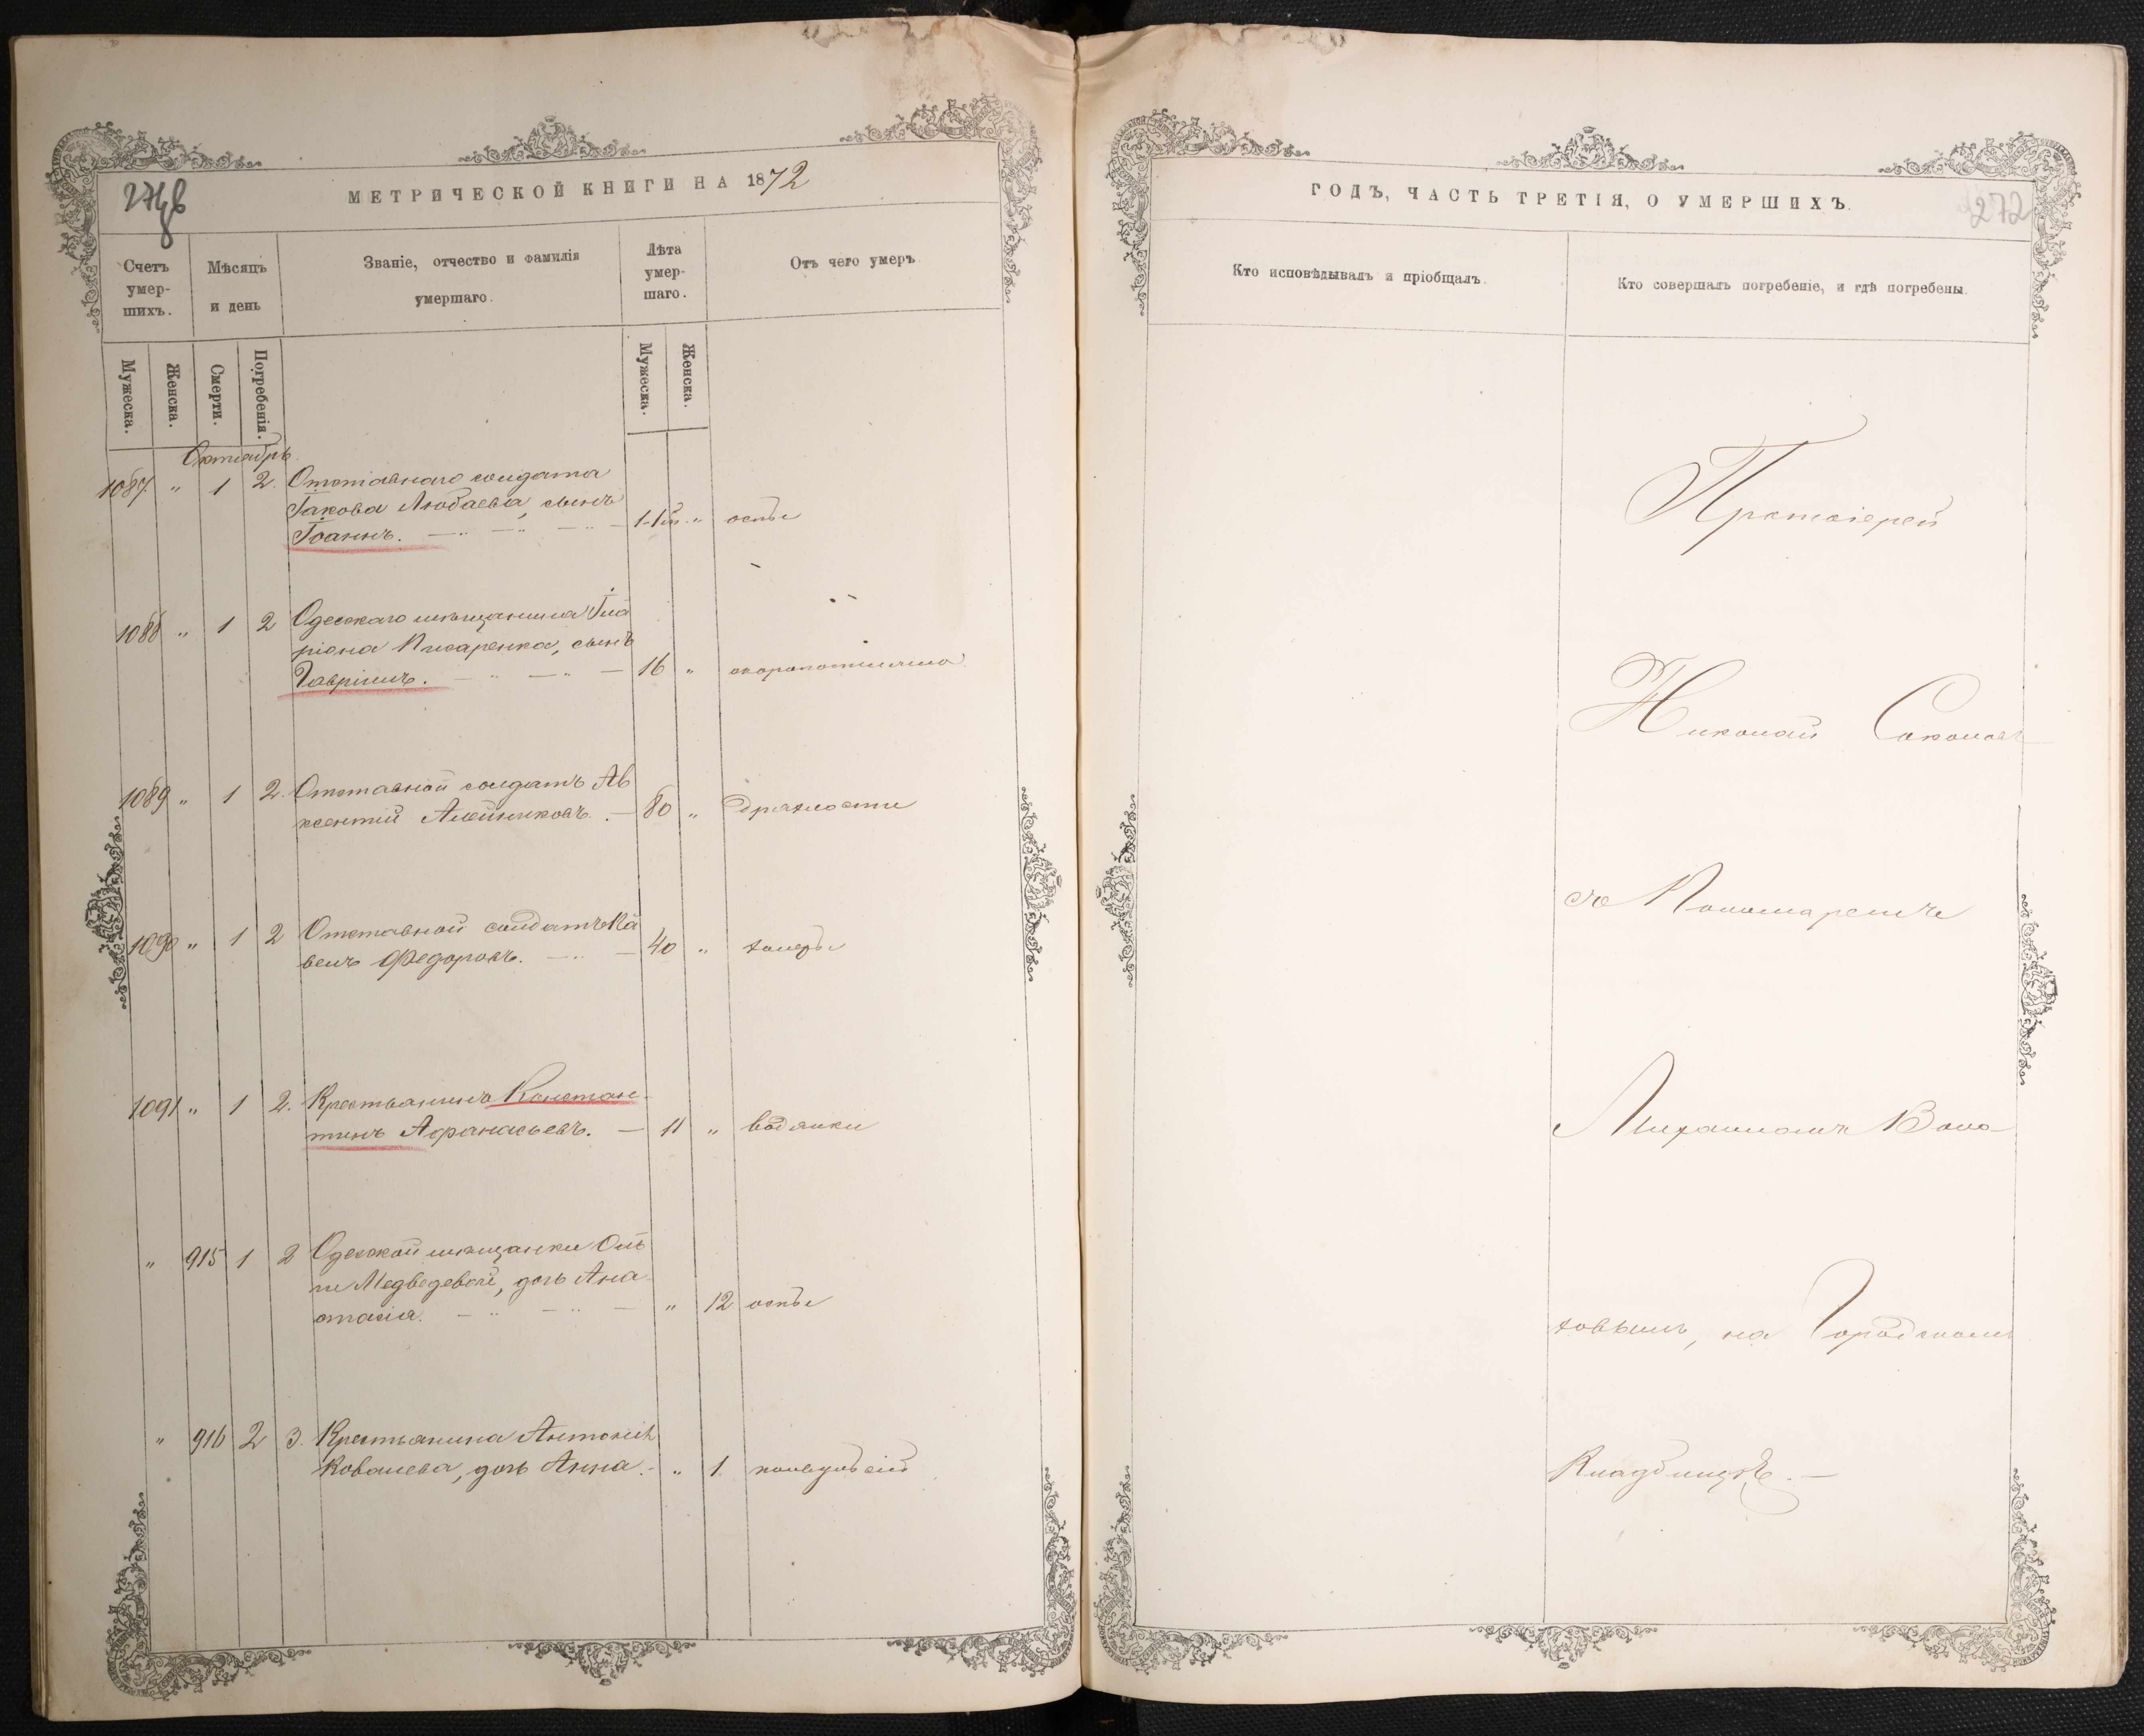 МЕТРИЧЕСКОЙ КНИГИ НА 1872
Счетъ умер-шихъ.
Мѣсяцъ и день
Званіе, отчество и фамилія умершаго.
Лѣта умер-шаго.
Отъ чего умеръ
Мужеска.
Женска.
Смерти.
Погребенія.
Мужеска.
Женска.
Октябрь.
1087. " 1 2. Отставнаго солдата
Іакова Любаева, сынъ
Іоаннъ. 1 " оспы
1088 " 1 2 Одесскаго мѣщанина Ила
ріона Писаренка, сынъ
Гавріилъ. 16 " скоропостижно
1089 " 1 2. Отставной солдатъ Ав
ксентій Алейниковъ. 80 " дряхлости
1090 " 1 2 Отставной солдатъ Па
велъ Федоровъ. 40 " холеры
1091 " 1 2. Крестьянинъ Констан-
тинъ Афанасьевъ. 11 " водянки
" 915 1 2 Одесской мѣщанки
Медведевой, дочь Ана
стасія. " 12 оспы
" 916 2 3. Крестьянина Антонія
Ковалева, дочь Анна. " 1.
ГОДЪ, ЧАСТЬ ТРЕТІЯ, О УМЕРШИХЪ.
272
Кто исповѣдывалъ и пріобщалъ.
Кто совершалъ погребеніе, и гдѣ погребены.
Протоіерей
Николай Соколовъ
съ Пономаремъ
Михаиломъ Воло
ховымъ, на Городскомъ
Кладбищѣ.